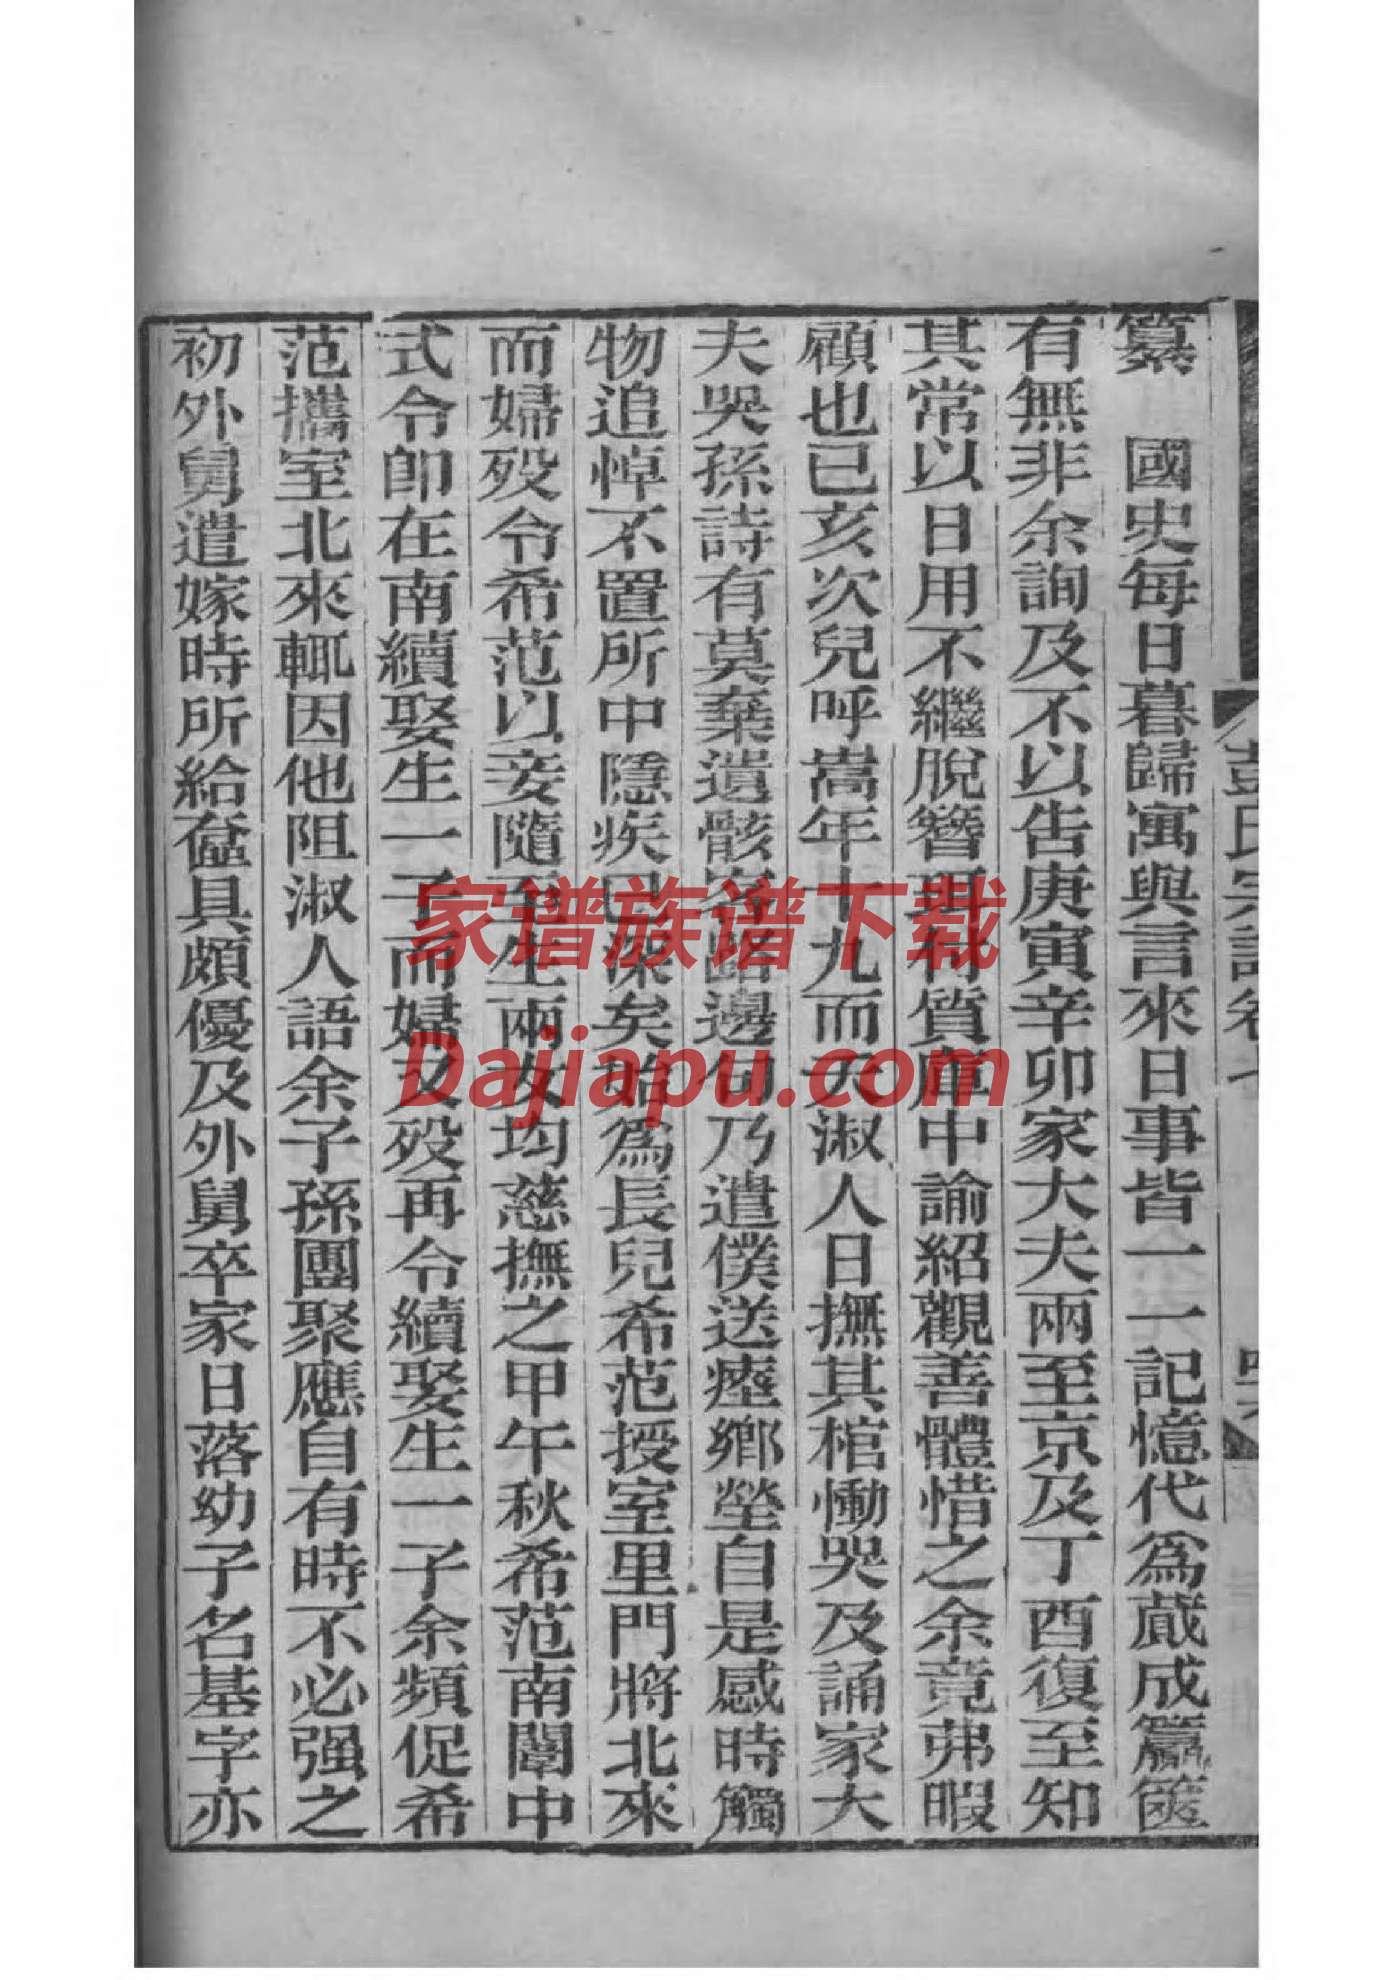 纂　國史每日暮歸寓與言來日事皆一一記憶代爲蕆成籯篋
有無非余詢及不以告庚寅辛卯家大夫兩至京及丁酉復至知
其常以日用不繼脫簪珥衬質庫中諭紹觀善體惜之余竟弗暇
顧也已亥次兒呼嵩年十九而夭淑人日撫其棺慟哭及誦家大
夫哭孫詩有莫棄遺骸客路邊句乃遣僕送瘞鄉塋自是感時觸
物追悼不置所中隱疾已深矣始爲長兒希范授室里門將北來
而婦殁令希范以妾隨至生兩女均慈撫之甲午秋希范南闈中
式令卽在南續娶生一子而婦又殁再令續娶生一子余頻促希
范攜室北來輒因他阻淑人語余子孫團聚應自有時不必强之
初外舅遣嫁時所給奩具頗優及外舅卒家日落幼子名基字亦
彭氏宗譜卷七
家谱族谱下载
Dajiapu.com